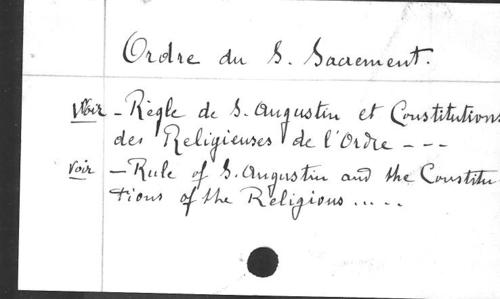 Ordre du S. Sacrement.
Voir - Règle de S. Augustin et Constitutions
des Religieuses de l'Ordre - - -
Voir - Rule of S. Augustin and the Constitu
tions of the Religious .....